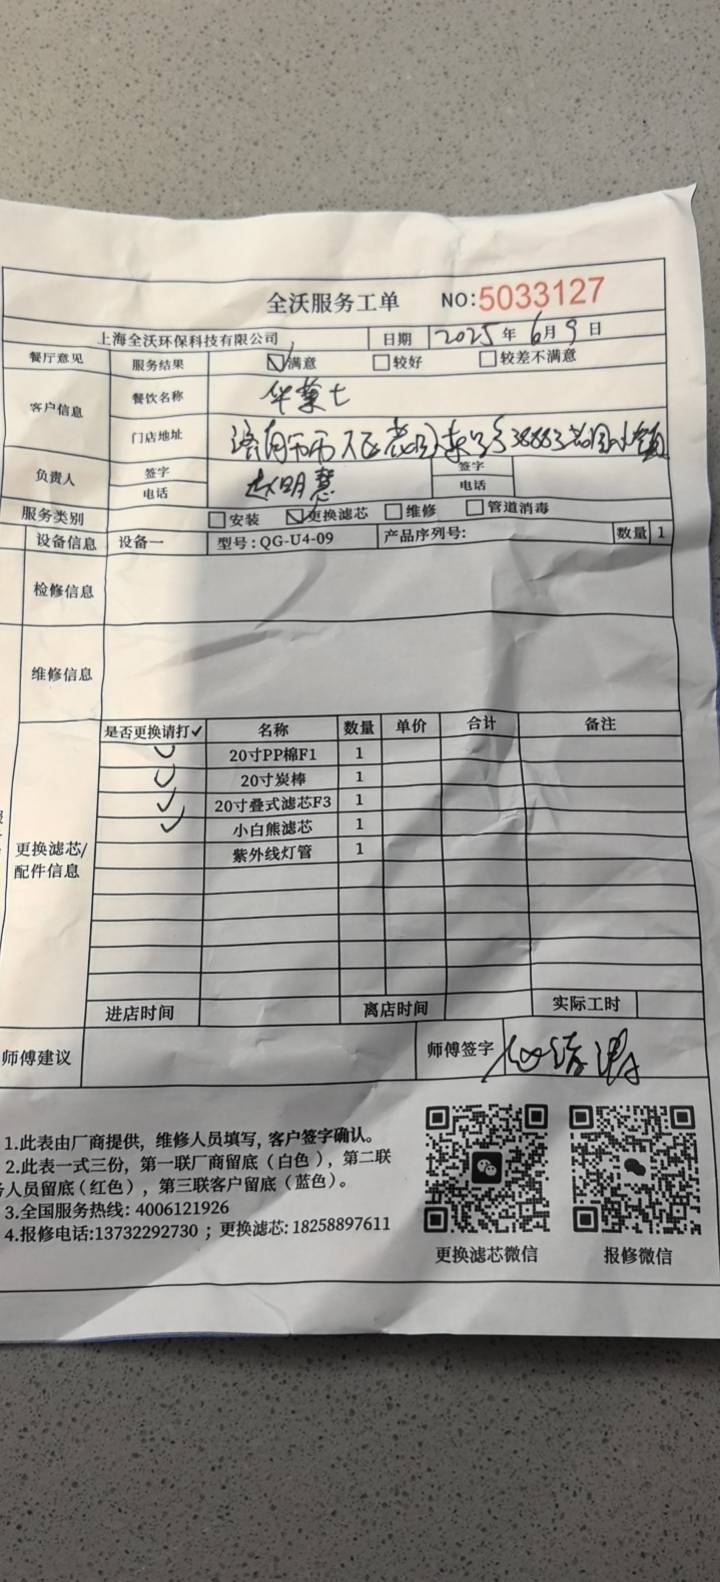 全沃服务工单 NO:5033127
上海全沃环保科技有限公司 日期 2025年6月9日
餐厅意见 服务结果 满意 较好 较差不满意
客户信息 餐饮名称 华莱士
门店地址
负责人 签字 赵明慧 签字
电话 电话
服务类别 安装 更换滤芯 维修 管道消毒
设备信息 设备一 型号:QG-U4-09 产品序列号: 数量 1
检修信息
维修信息
是否更换请打✓ 名称 数量 单价 合计 备注
✓ 20寸PP棉F1 1
✓ 20寸炭棒 1
✓ 20寸叠式滤芯F3 1
✓ 小白熊滤芯 1
紫外线灯管 1
更换滤芯/
配件信息
进店时间 离店时间 实际工时
师傅建议 师傅签字
1.此表由厂商提供, 维修人员填写, 客户签字确认。
2.此表一式三份, 第一联厂商留底(白色), 第二联
人员留底(红色), 第三联客户留底(蓝色)。
3.全国服务热线: 4006121926
4.报修电话:13732292730 ; 更换滤芯: 18258897611
更换滤芯微信 报修微信